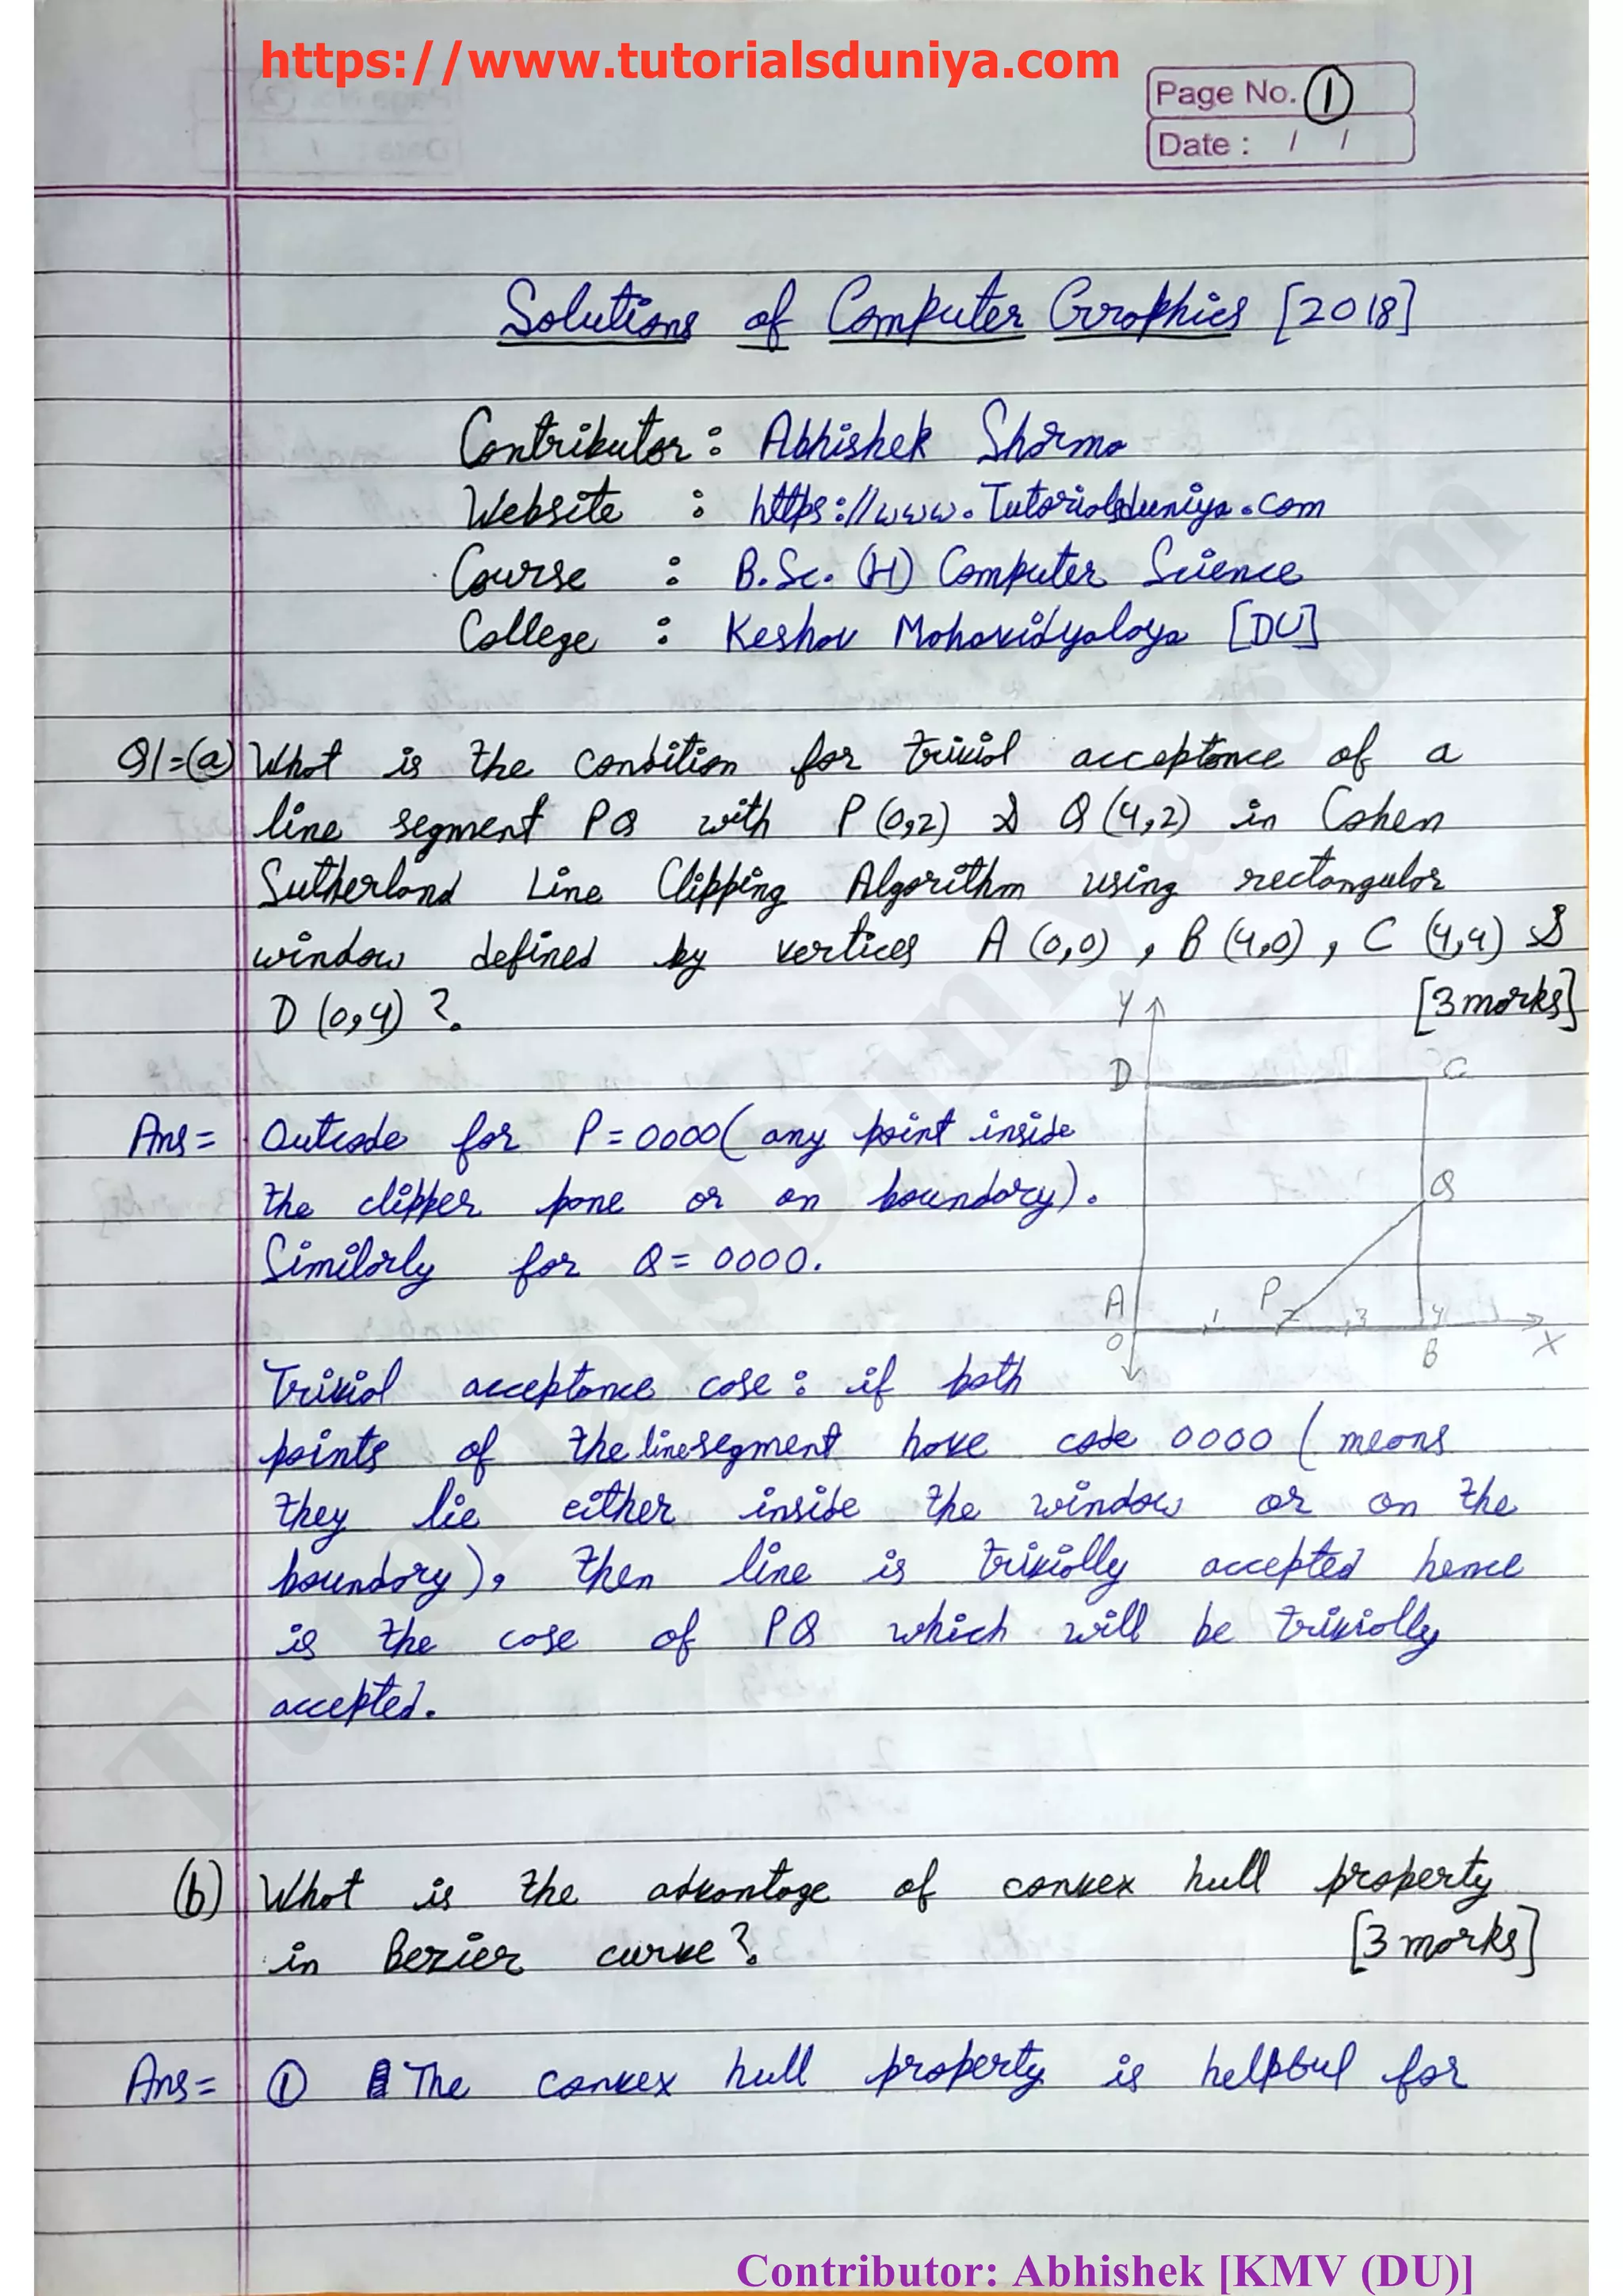 https://www.tutorialsduniya.com
Page No. 1
Date : / /
Solutions of Computer Graphics [2018]
Contributor : Abhishek Sharma
Website : https://www.Tutorialsduniya.com
Course : B.Sc. (H) Computer Science
College : Keshav Mahavidyalaya [DU]
Q1=(a) What is the condition for trivial acceptance of a
line segment PQ with P(0,2) & Q(4,2) in Cohen
Sutherland Line Clipping Algorithm using rectangular
window defined by vertices A (0,0) , B (4,0) , C (4,4) &
D (0,4) ? [3 marks]
Y
D C
Ans = Outcode for P = 0000 ( any point inside
the clipper pane or on boundary).
Q
Similarly for Q = 0000.
A P
0 1 2 3 4 X
B
Trivial acceptance case : if both
points of the line segment have code 0000 ( means
they lie either inside the window or on the
boundary), then line is trivially accepted hence
is the case of PQ which will be trivially
accepted.
(b) What is the advantage of convex hull property
in Bezier curve ? [3 marks]
Ans = ① The convex hull property is helpful for
Contributor: Abhishek [KMV (DU)]
Tutorialsduniya.com